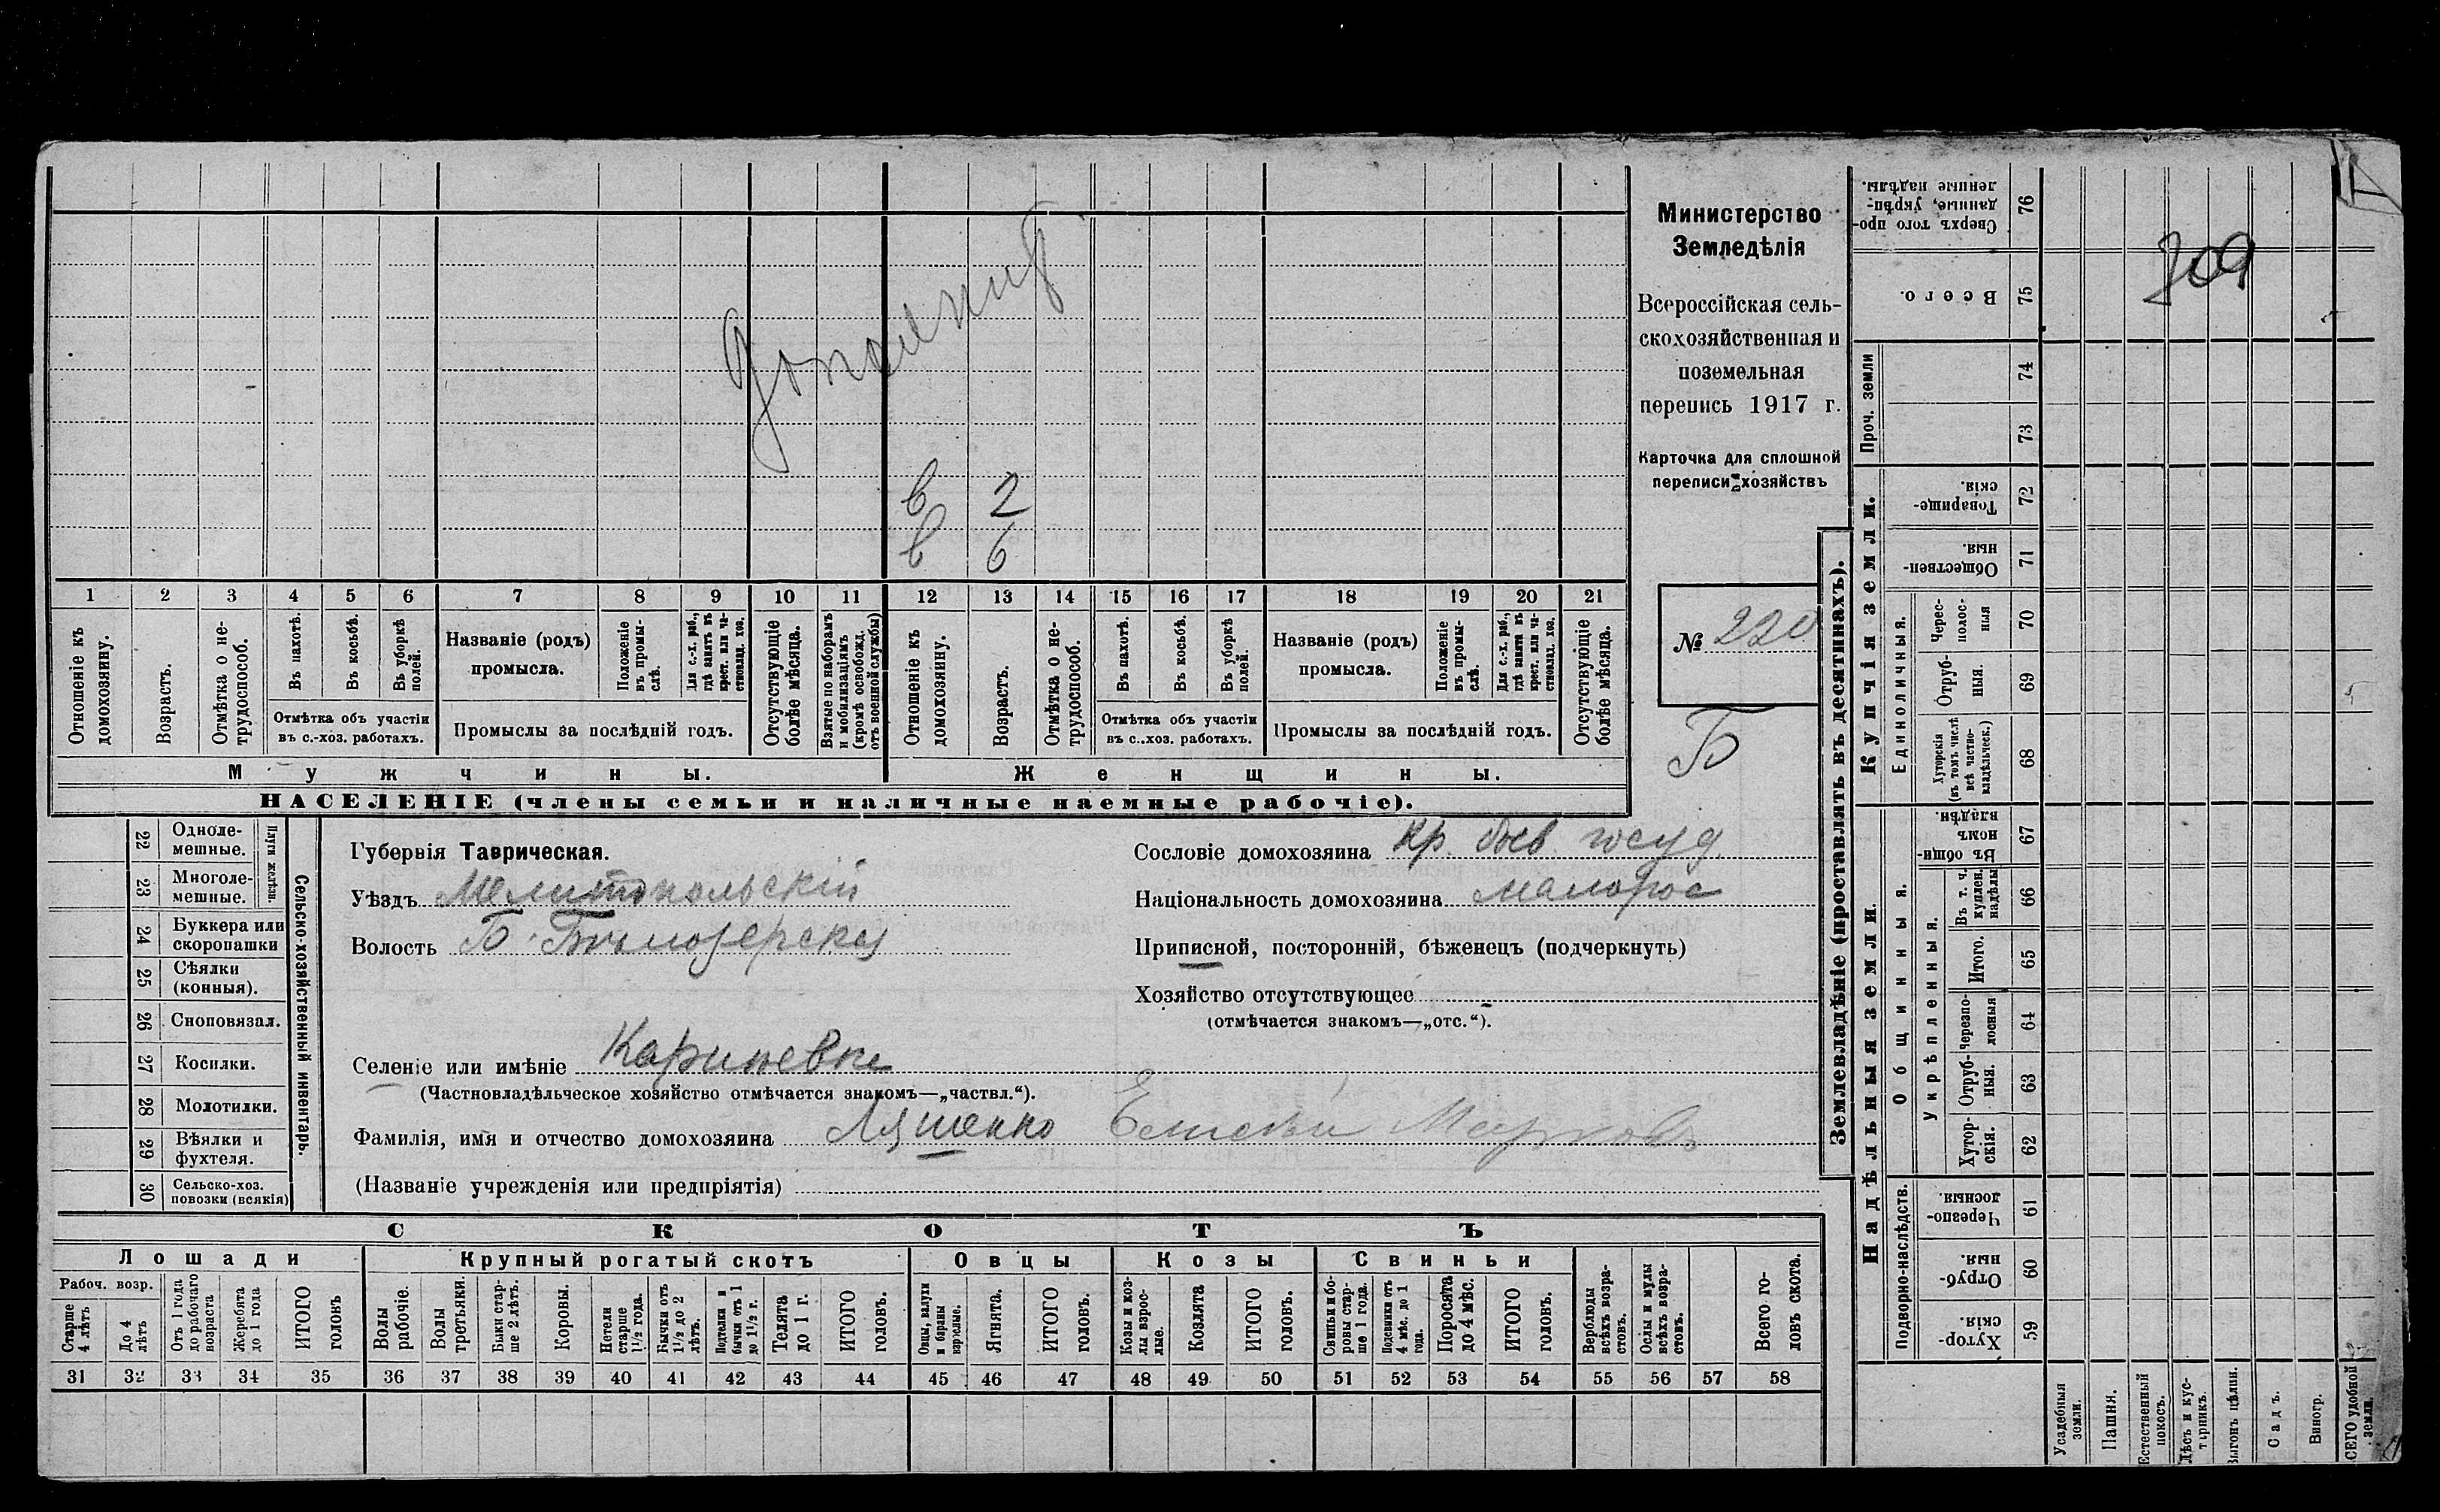 Министерство
Земледѣлія
Всероссійская сель-
скохозяйственная и
поземельная
перепись 1917 г.
Карточка для сплошной
переписи хозяйствъ
№ 220
Б
в 2
в 6
1 2 3 4 5 6 7 8 9 10 11 12 13 14 15 16 17 18 19 20 21
Отношеніе къ домохозяину.
Возрастъ.
Отмѣтка о не-трудоспособ.
Въ пахотѣ.
Въ косьбѣ.
Въ уборкѣ полей.
Отмѣтка объ участіи
въ с.-хоз. работахъ.
Названіе (родъ)
промысла.
Положеніе въ промы-слѣ.
Для с.-х. раб., гдѣ занятъ въ крест. или ча-стновлад. хоз.
Промыслы за послѣдній годъ.
Отсутствующіе болѣе мѣсяца.
Взятые по наборамъ и мобилизаціямъ (кромѣ освобожд. отъ военной службы)
Отношеніе къ домохозяину.
Возрастъ.
Отмѣтка о не-трудоспособ.
Въ пахотѣ.
Въ косьбѣ.
Въ уборкѣ полей.
Отмѣтка объ участіи
въ с..хоз. работахъ.
Названіе (родъ)
промысла.
Положеніе въ промы-слѣ.
Для с.-х. раб., гдѣ занята въ крест. или ча-стновлад. хоз.
Промыслы за послѣдній годъ.
Отсутствующіе болѣе мѣсяца.
Мужчины.
Женщины.
НАСЕЛЕНІЕ (члены семьи и наличные наемные рабочіе).
22 Одноле-мешные.
23 Многоле-мешные.
Плуги желѣзн.
24 Буккера или скоропашки
25 Сѣялки (конныя).
26 Сноповязал.
27 Косилки.
28 Молотилки.
29 Вѣялки и фухтеля.
30 Сельско-хоз. повозки (всякія)
Сельско-хозяйственный инвентарь.
Губернія Таврическая.
Уѣздъ Мелитопольскій
Волость
Селеніе или имѣніе
(Частновладѣльческое хозяйство отмѣчается знакомъ—„частвл.“).
Фамилія, имя и отчество домохозяина Ляшенко
(Названіе учрежденія или предпріятія)
Сословіе домохозяина кр. быв. госуд.
Національность домохозяина малорос
Приписной, посторонній, бѣженецъ (подчеркнуть)
Хозяйство отсутствующее
(отмѣчается знакомъ—„отс.“).
СКОТЪ
Лошади
Крупный рогатый скотъ
Овцы
Козы
Свиньи
Рабоч. возр.
Старше 4 лѣтъ
До 4 лѣтъ
Отъ 1 года до рабочаго возраста
Жеребята до 1 года
ИТОГО головъ
Волы рабочіе.
Волы третьяки.
Быки стар-ше 2 лѣтъ.
Коровы.
Нетели старше 1½ года.
Бычки отъ 1½ до 2 лѣтъ.
Подтелки и бычки отъ 1 до 1½ г.
Телята до 1 г.
ИТОГО головъ.
Овцы, валухи и бараны взрослые.
Ягнята.
ИТОГО головъ.
Козы и коз-лы взрос-лые.
Козлята
ИТОГО головъ.
Свиньи и бо-ровы стар-ше 1 года.
Подсвинки отъ 4 мѣс. до 1 года.
Поросята до 4 мѣс.
ИТОГО головъ.
Верблюды всѣхъ возра-стовъ.
Ослы и мулы всѣхъ возра-стовъ.
Всего го-ловъ скота.
31 32 33 34 35 36 37 38 39 40 41 42 43 44 45 46 47 48 49 50 51 52 53 54 55 56 57 58
Землевладѣніе (проставлять въ десятинахъ).
Купчія земли.
Надѣльныя земли.
Сверхъ того про-данные, укрѣп-ленные надѣлы. 76
Всего. 75
Проч. земли
74
73
Товарище-скія. 72
Обществен-ныя. 71
Единоличныя.
Черес-полос-ныя 70
Отруб-ныя. 69
Хуторскія (въ томъ числѣ всѣ частно-владѣльческ.) 68
Общинныя.
Въ общи-номъ владѣн. 67
Укрѣпленныя.
Въ т. ч. куплен. надѣлы 66
Итого. 65
Черезпо-лосныя 64
Отруб-ныя. 63
Хутор-скія. 62
Подворно-наслѣдств.
Черезпо-лосныя. 61
Отруб-ныя. 60
Хутор-скія. 59
Усадебныя земли.
Пашня.
Естественный покосъ.
Лѣсъ и кус-тарникъ.
Выгонъ цѣлин.
Садъ.
Виногр.
ВСЕГО удобной земли.